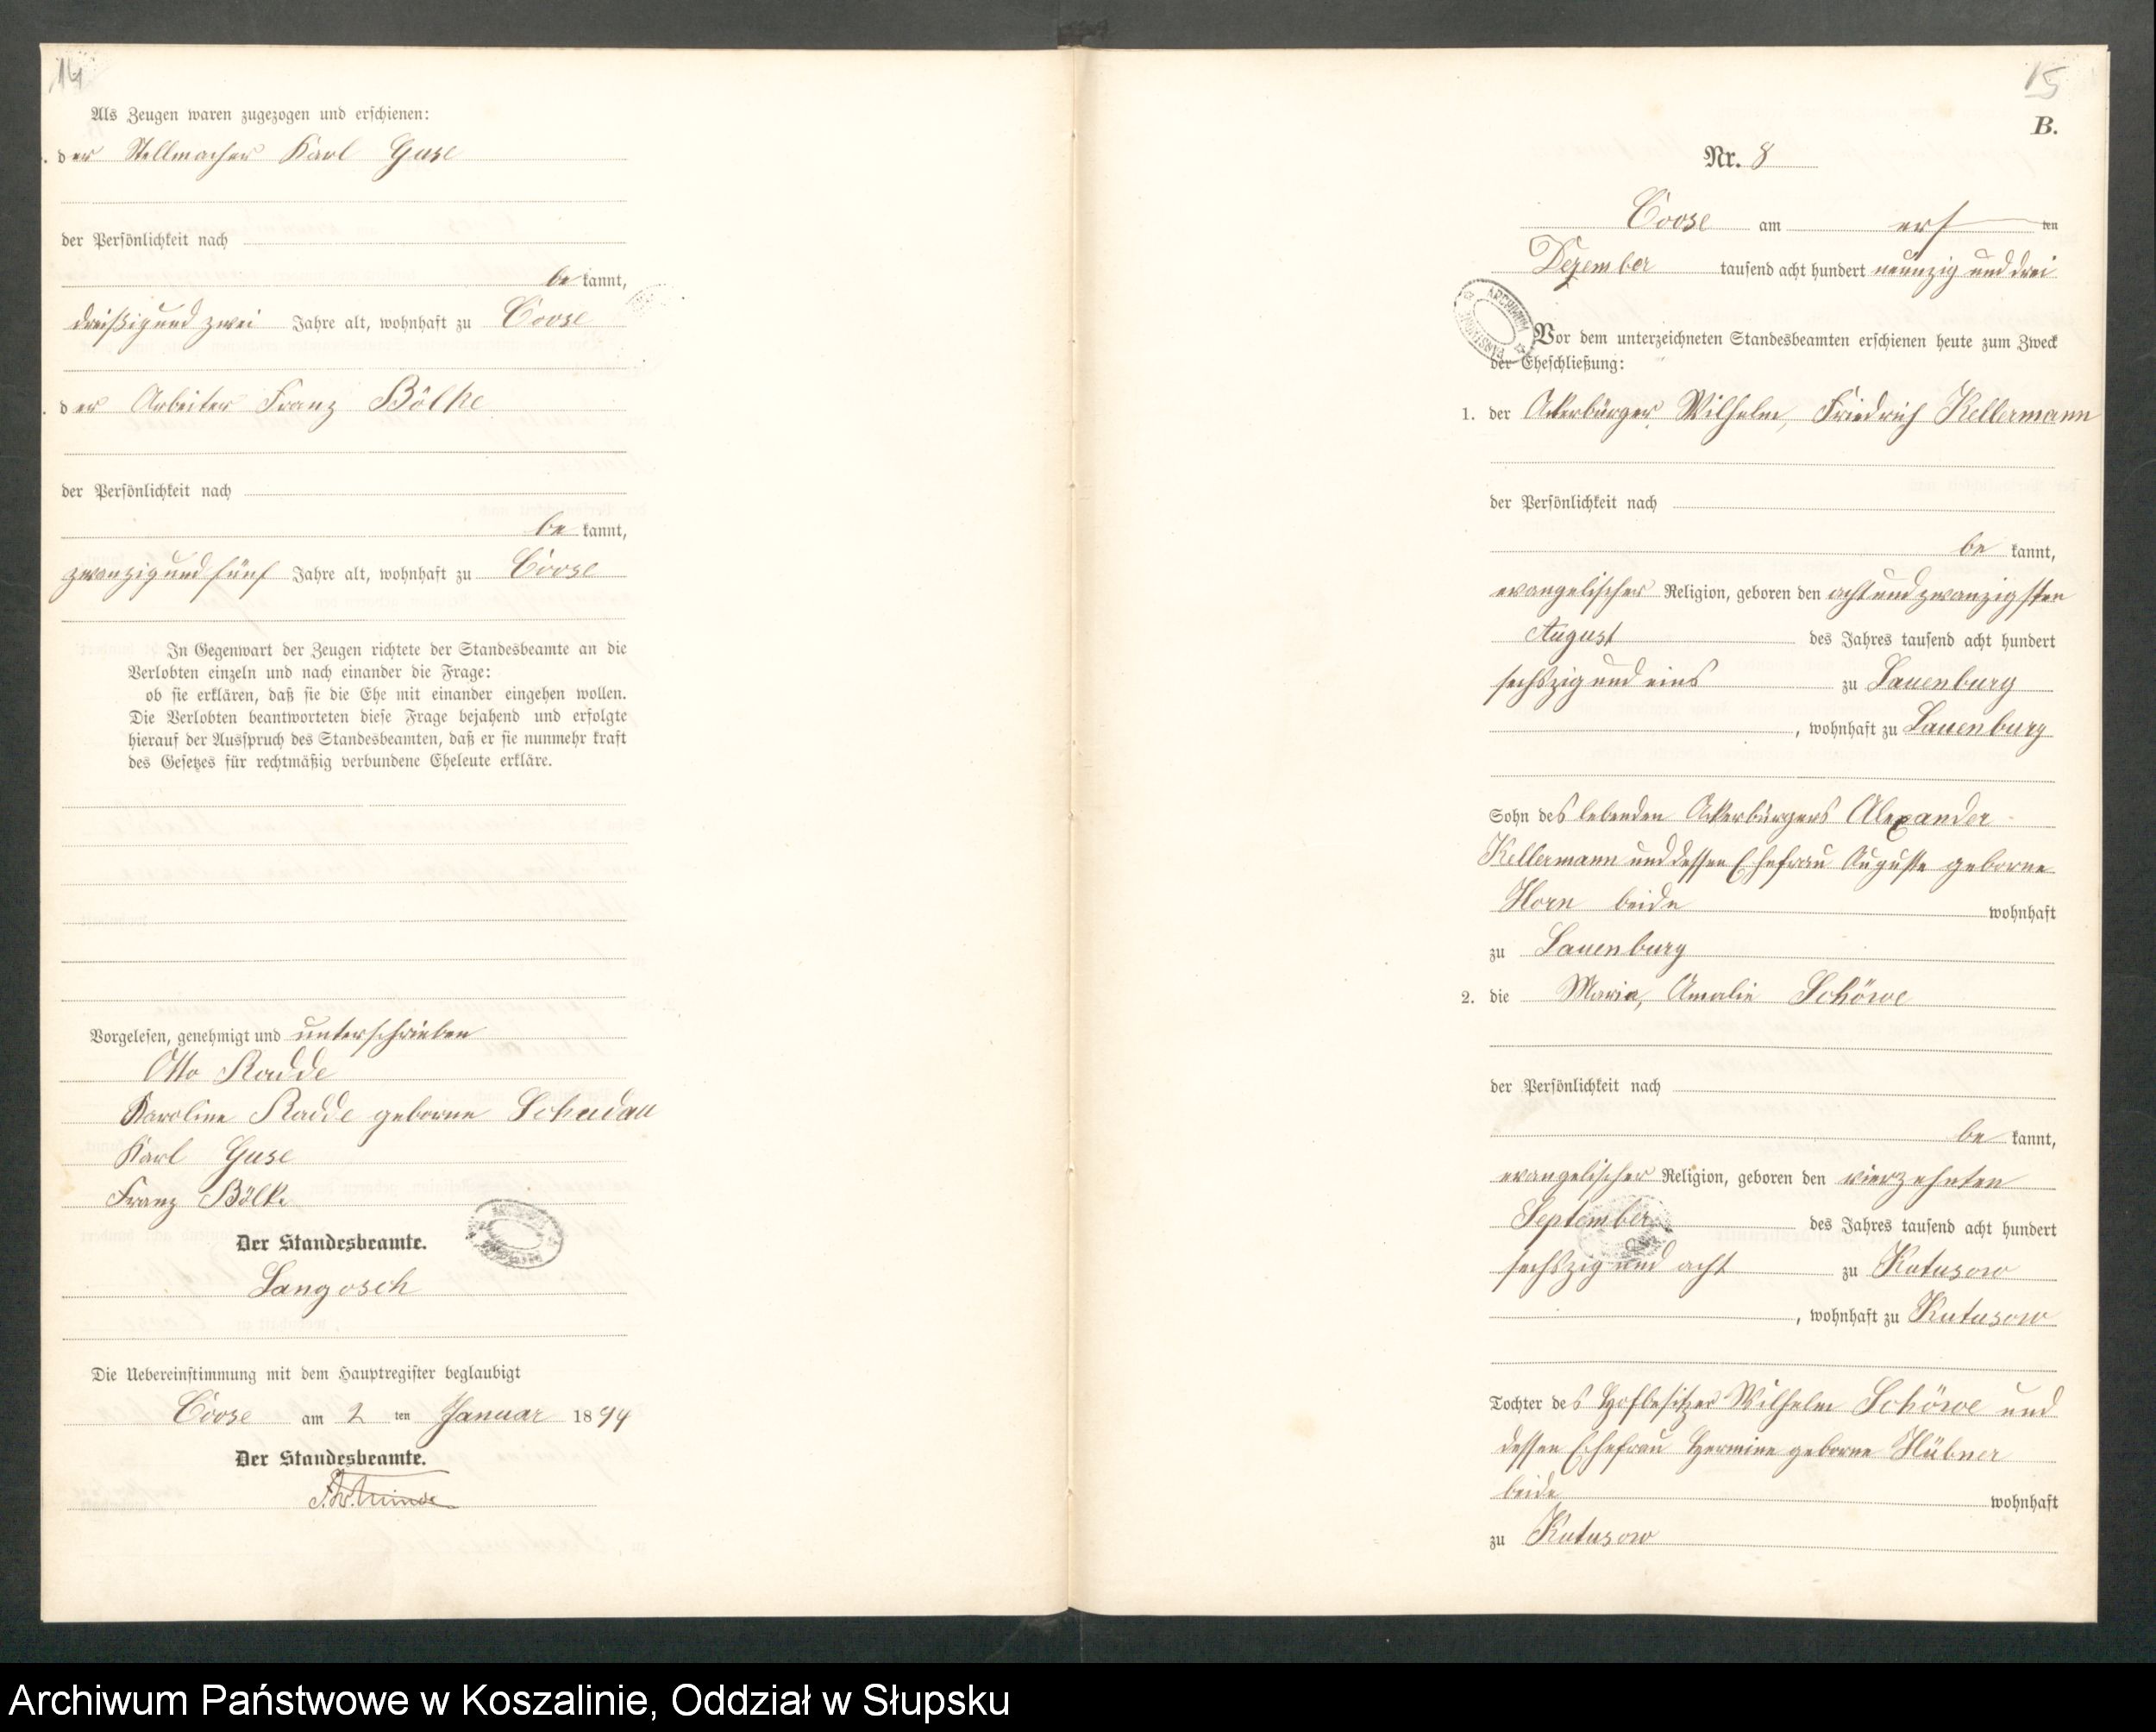 14
Als Zeugen waren zugezogen und erschienen:
. der Stellmacher Karl Guse
der Persönlichkeit nach
be kannt,
dreißig und zwei Jahre alt, wohnhaft zu Coose
. der Arbeiter Franz Bölke
der Persönlichkeit nach
be kannt,
zwanzig und fünf Jahre alt, wohnhaft zu Coose
In Gegenwart der Zeugen richtete der Standesbeamte an die
Verlobten einzeln und nach einander die Frage:
ob sie erklären, daß sie die Ehe mit einander eingehen wollen.
Die Verlobten beantworteten diese Frage bejahend und erfolgte
hierauf der Ausspruch des Standesbeamten, daß er sie nunmehr kraft
des Gesetzes für rechtmäßig verbundene Eheleute erkläre.
Vorgelesen, genehmigt und unterschrieben
Otto Radde
Karoline Radde geborne Schudau
Karl Guse
Franz Bölke
Der Standesbeamte.
Langosch
Die Uebereinstimmung mit dem Hauptregister beglaubigt
Coose am 2 ten Januar 1894
Der Standesbeamte.
15
B.
Nr. 8
Coose am erf ten
Dezember tausend acht hundert neunzig und drei
ARCHIWUM
Vor dem unterzeichneten Standesbeamten erschienen heute zum Zweck
der Eheschließung:
1. der Ackerbürger Wilhelm, Friedrich Kellermann
der Persönlichkeit nach
be kannt,
evangelischer Religion, geboren den acht und zwanzigsten
August des Jahres tausend acht hundert
sechszig und eins zu Lauenburg
, wohnhaft zu Lauenburg
Sohn des lebenden Ackerbürgers Alexander
Kellermann und dessen Ehefrau Auguste geborne
Horn beide wohnhaft
zu Lauenburg
2. die Marie, Amalie Schöwe
der Persönlichkeit nach
be kannt,
evangelischer Religion, geboren den vierzehnten
September des Jahres tausend acht hundert
sechszig und acht zu Katusow
, wohnhaft zu Katusow
Tochter des Hofbesitzer Wilhelm Schöwe und
dessen Ehefrau Hermine geborne Hübner
beide wohnhaft
zu Katusow
Archiwum Państwowe w Koszalinie, Oddział w Słupsku